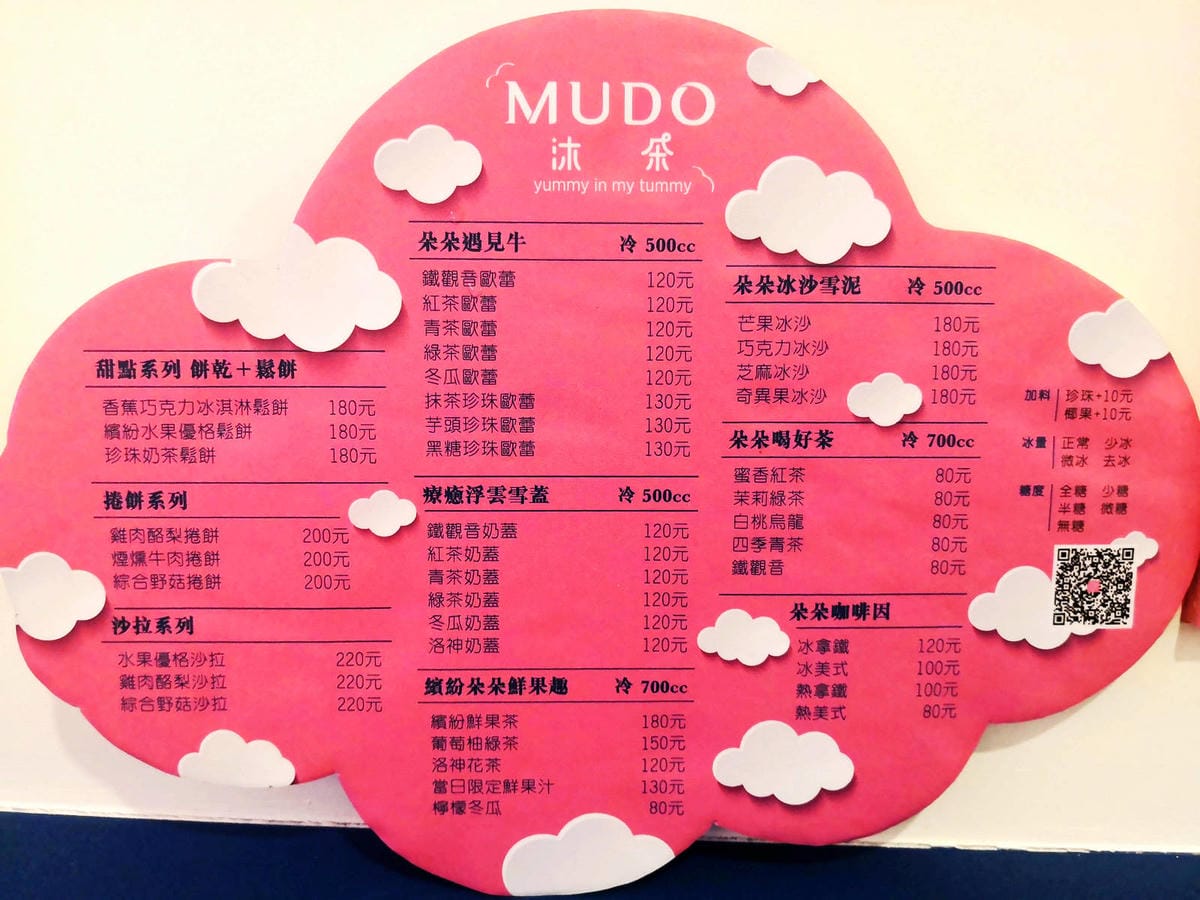 MUDO
沐朵
yummy in my tummy
甜點系列 餅乾＋鬆餅
香蕉巧克力冰淇淋鬆餅 180元
繽紛水果優格鬆餅 180元
珍珠奶茶鬆餅 180元
捲餅系列
雞肉酪梨捲餅 200元
煙燻牛肉捲餅 200元
綜合野菇捲餅 200元
沙拉系列
水果優格沙拉 220元
雞肉酪梨沙拉 220元
綜合野菇沙拉 220元
朵朵遇見牛 冷 500cc
鐵觀音歐蕾 120元
紅茶歐蕾 120元
青茶歐蕾 120元
綠茶歐蕾 120元
冬瓜歐蕾 120元
抹茶珍珠歐蕾 130元
芋頭珍珠歐蕾 130元
黑糖珍珠歐蕾 130元
療癒浮雲雪蓋 冷 500cc
鐵觀音奶蓋 120元
紅茶奶蓋 120元
青茶奶蓋 120元
綠茶奶蓋 120元
冬瓜奶蓋 120元
洛神奶蓋 120元
繽紛朵朵鮮果趣 冷 700cc
繽紛鮮果茶 180元
葡萄柚綠茶 150元
洛神花茶 120元
當日限定鮮果汁 130元
檸檬冬瓜 80元
朵朵冰沙雪泥 冷 500cc
芒果冰沙 180元
巧克力冰沙 180元
芝麻冰沙 180元
奇異果冰沙 180元
朵朵喝好茶 冷 700cc
蜜香紅茶 80元
茉莉綠茶 80元
白桃烏龍 80元
四季青茶 80元
鐵觀音 80元
朵朵咖啡因
冰拿鐵 120元
冰美式 100元
熱拿鐵 100元
熱美式 80元
加料 珍珠+10元
椰果+10元
冰量 正常 少冰
微冰 去冰
糖度 全糖 少糖
半糖 微糖
無糖